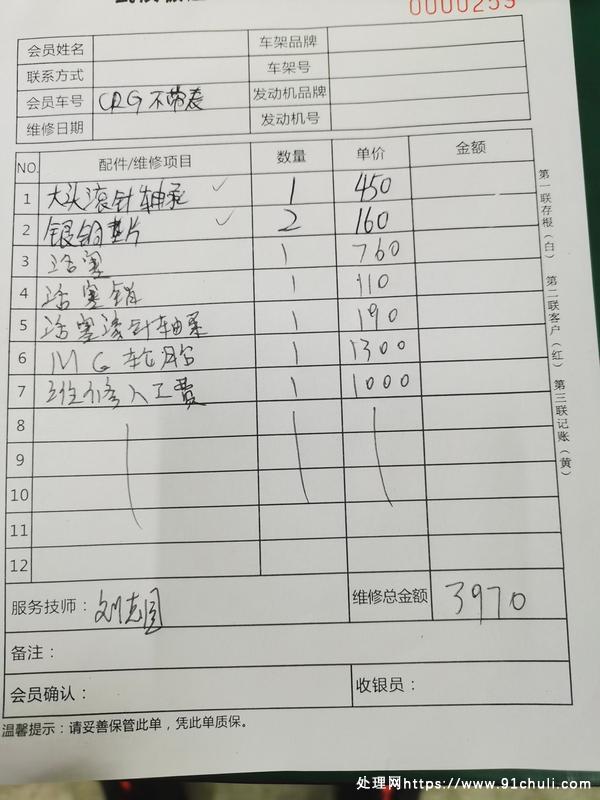 0000259
会员姓名 车架品牌
联系方式 车架号
会员车号 CRG 不带表 发动机品牌
维修日期 发动机号
NO. 配件/维修项目 数量 单价 金额
1 大头滚针轴承 ✓ 1 450
2 银铜垫片 ✓ 2 160
3 活塞 1 760
4 活塞销 1 110
5 活塞滚针轴承 1 190
6 MG 轮胎 1 1300
7 维修人工费 1 1000
8
9
10
11
12
第一联存根(白) 第二联客户(红) 第三联记账(黄)
服务技师: 维修总金额 3970
备注:
会员确认: 收银员:
温馨提示:请妥善保管此单,凭此单质保。
处理网https://www.91chuli.com/